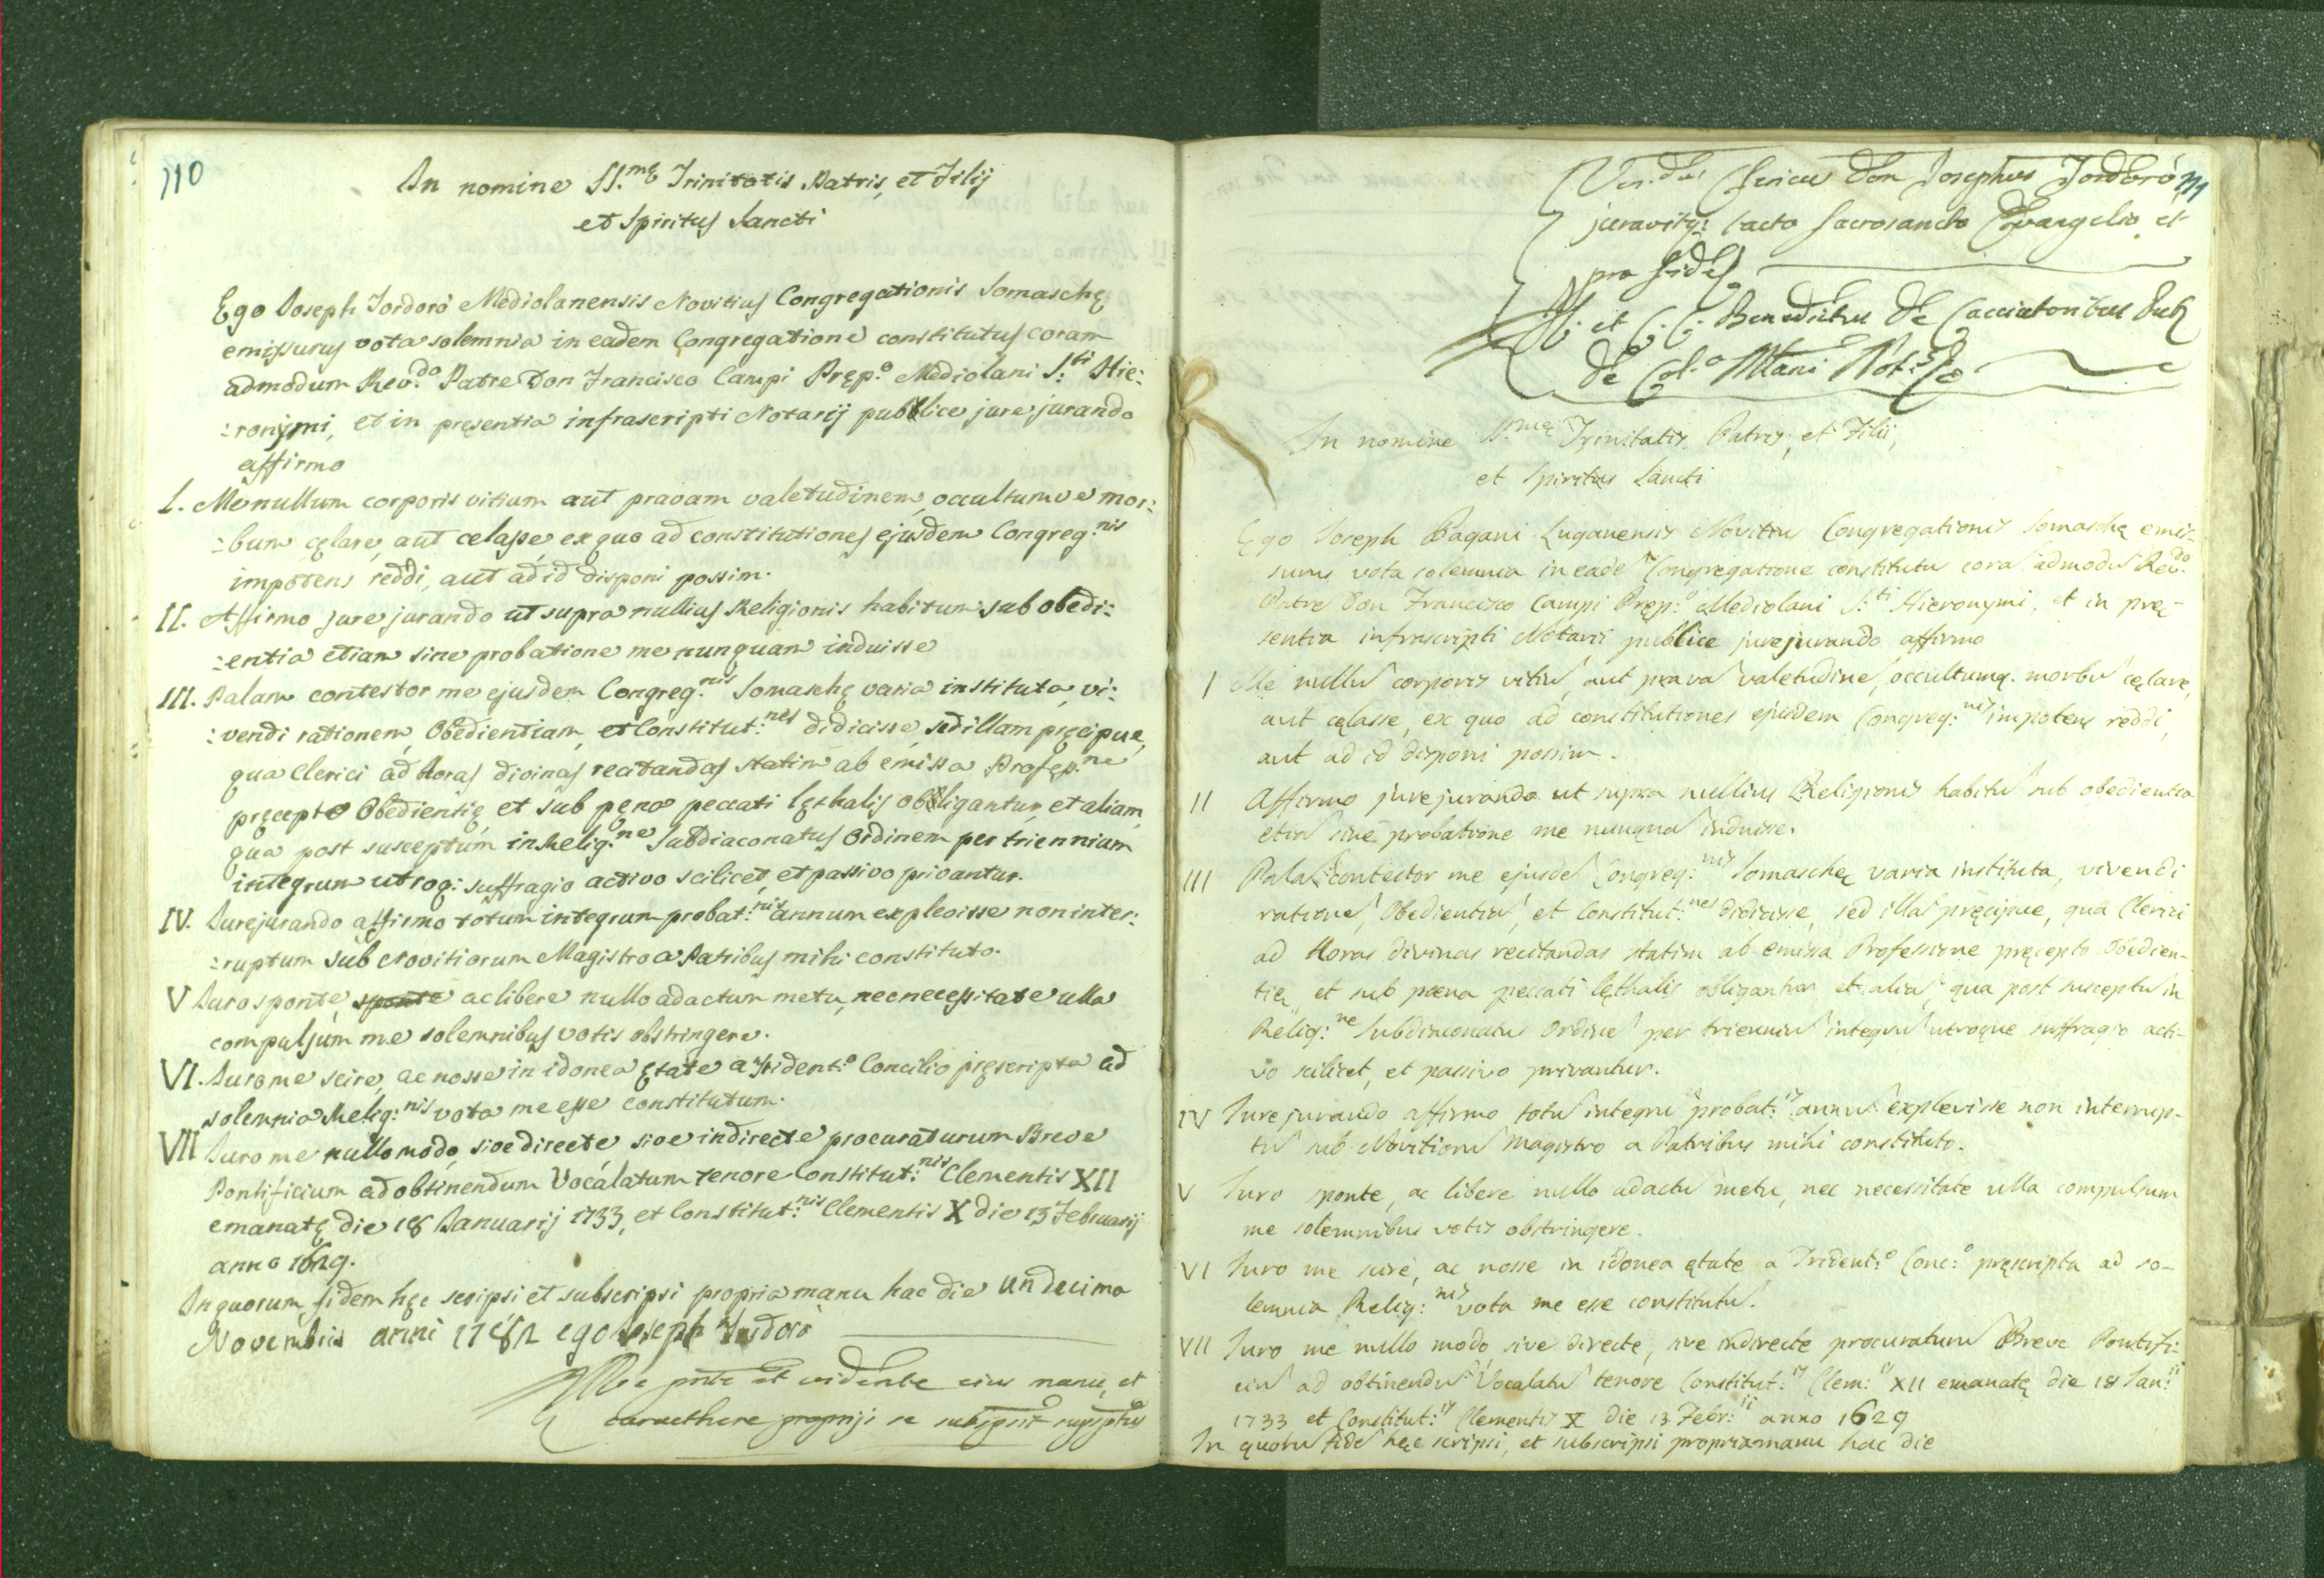 110
In nomine SS.mę Trinitatis Patris, et Filij
et Spiritus Sancti
Ego Joseph Tordorò Mediolanensis Novitius Congregationis Somaschę
emissurus vota solemnia in eadem Congregatione constitutus coram
admodum Rev:do Patre Don Francisco Campi Pręp:o Mediolani S:ti Hie:
:ronymi, et in pręsentia infrascripti Notarij publice jure jurando
affirmo
I. Me nullum corporis vitium aut pravam valetudinem, occultumve mor:
:bum cęlare, aut celasse, ex quo ad constitutiones ejusdem Congreg:nis
impotens reddi, aut ad id disponi possim.
II. Affirmo jure jurando ut supra nullius Religionis habitum sub obedi:
:entia etiam sine probatione me nunquam induisse
III. Palam contestor me ejusdem Congreg:nis Somaschę varia instituta, vi:
:vendi rationem, Obedientiam, et Constitut:nes didicisse, sed illam pręcipue,
qua Clerici ad Horas divinas recitandas statim ab emissa Profes:ne
pręcepto Obedientię, et sub pęna peccati lęthalis obligantur, et aliam,
qua post susceptum in Relig:ne Subdiaconatus Ordinem per triennium
integrum utroq: suffragio activo scilicet, et passivo privantur.
IV. Jurejurando affirmo totum integrum probat:nis annum explevisse non inter:
:ruptum sub Novitiorum Magistro a Patribus mihi constituto.
V Juro sponte, sponte ac libere nullo adactum metu, nec necessitate ulla
compulsum me solemnibus votis obstringere.
VI. Juro me scire, ac nosse in idonea ętate a Trident:o Concilio pręscripta ad
solemnia Relig:nis vota me esse constitutum.
VII Juro me nullo modo, sive directe sive indirecte procuraturum Breve
Pontificium ad obtinendum Vocalatum tenore Constitut:nis Clementis XII
emanatę die 18 Januarij 1733, et Constitut:nis Clementis X die 13 Februarij
anno 1629.
In quorum fidem hęc scripsi et subscripsi propria manu hac die undecima
Novembris anni 1782 ego Joseph Tordorò
Me pnte et vidente eius manu, et
caracthere proprijs se subscripsit suprascriptus
111
Ven:dus Clericus Don Josephus Tordorò
juravitq: tacto Sacrosancto Evangelio et
pro fide
Benedictus De Cacciatoribus
De Col:o Mlani Not:s
In nomine SS.mę Trinitatis Patris, et Filii,
et Spiritus Sancti
Ego Joseph Pagani Luganensis Novitiu Congregationis Somaschę emis-
surus vota solemnia in eade Congregatione constitutu cora admodu Rev:do
Patre Don Francisco Campi Pręp:o Mediolani S:ti Hieronymi, et in prę-
sentia infrascripti Notarii publice jurejurando affirmo
I Me nullu corporis vitiu, aut prava valetudine, occultumq. morbu cęlare,
aut cęlasse, ex quo ad constitutiones ejusdem Congreg:nis impotens reddi,
aut ad id disponi possim.
II Affirmo jurejurando ut supra nullius Religionis habitu sub obedientia
etia sine probatione me nunqua induisse.
III Pala contestor me ejusde Congreg:nis Somaschę varia instituta, vivendi
ratione, Obedientia, et Constitut:nes didicisse, sed illa pręcipue, qua Clerici
ad Horas divinas recitandas statim ab emissa Professione pręcepto Obedien-
tię, et sub poena peccati lęthalis obligantur, et alia, qua post susceptu in
Relig:ne Subdiaconatus Ordine per trienniu integru utroque suffragio acti-
vo scilicet, et passivo privantur.
IV Jure jurando affirmo totu integru probat:is annu explevisse non interrup-
tu sub Novitioru Magistro a Patribus mihi constituto.
V Juro sponte, ac libere nullo adactu metu, nec necessitate ulla compulsum
me solemnibus votis obstringere.
VI Juro me scire, ac nosse in idonea ętate a Trident:o Conc:o pręscripta ad so-
lemnia Relig:nis vota me esse constitutu.
VII Juro me nullo modo, sive directe, sive indirecte procuraturu Breve Pontifi-
ciu ad obtinendu Vocalatu tenore Constitut:is Clem:is XII emanatę die 18 Jan:ii
1733 et Constitut:is Clementis X die 13 Febr:ii anno 1629
In quoru fide hęc scripsi, et subscripsi propria manu hac die